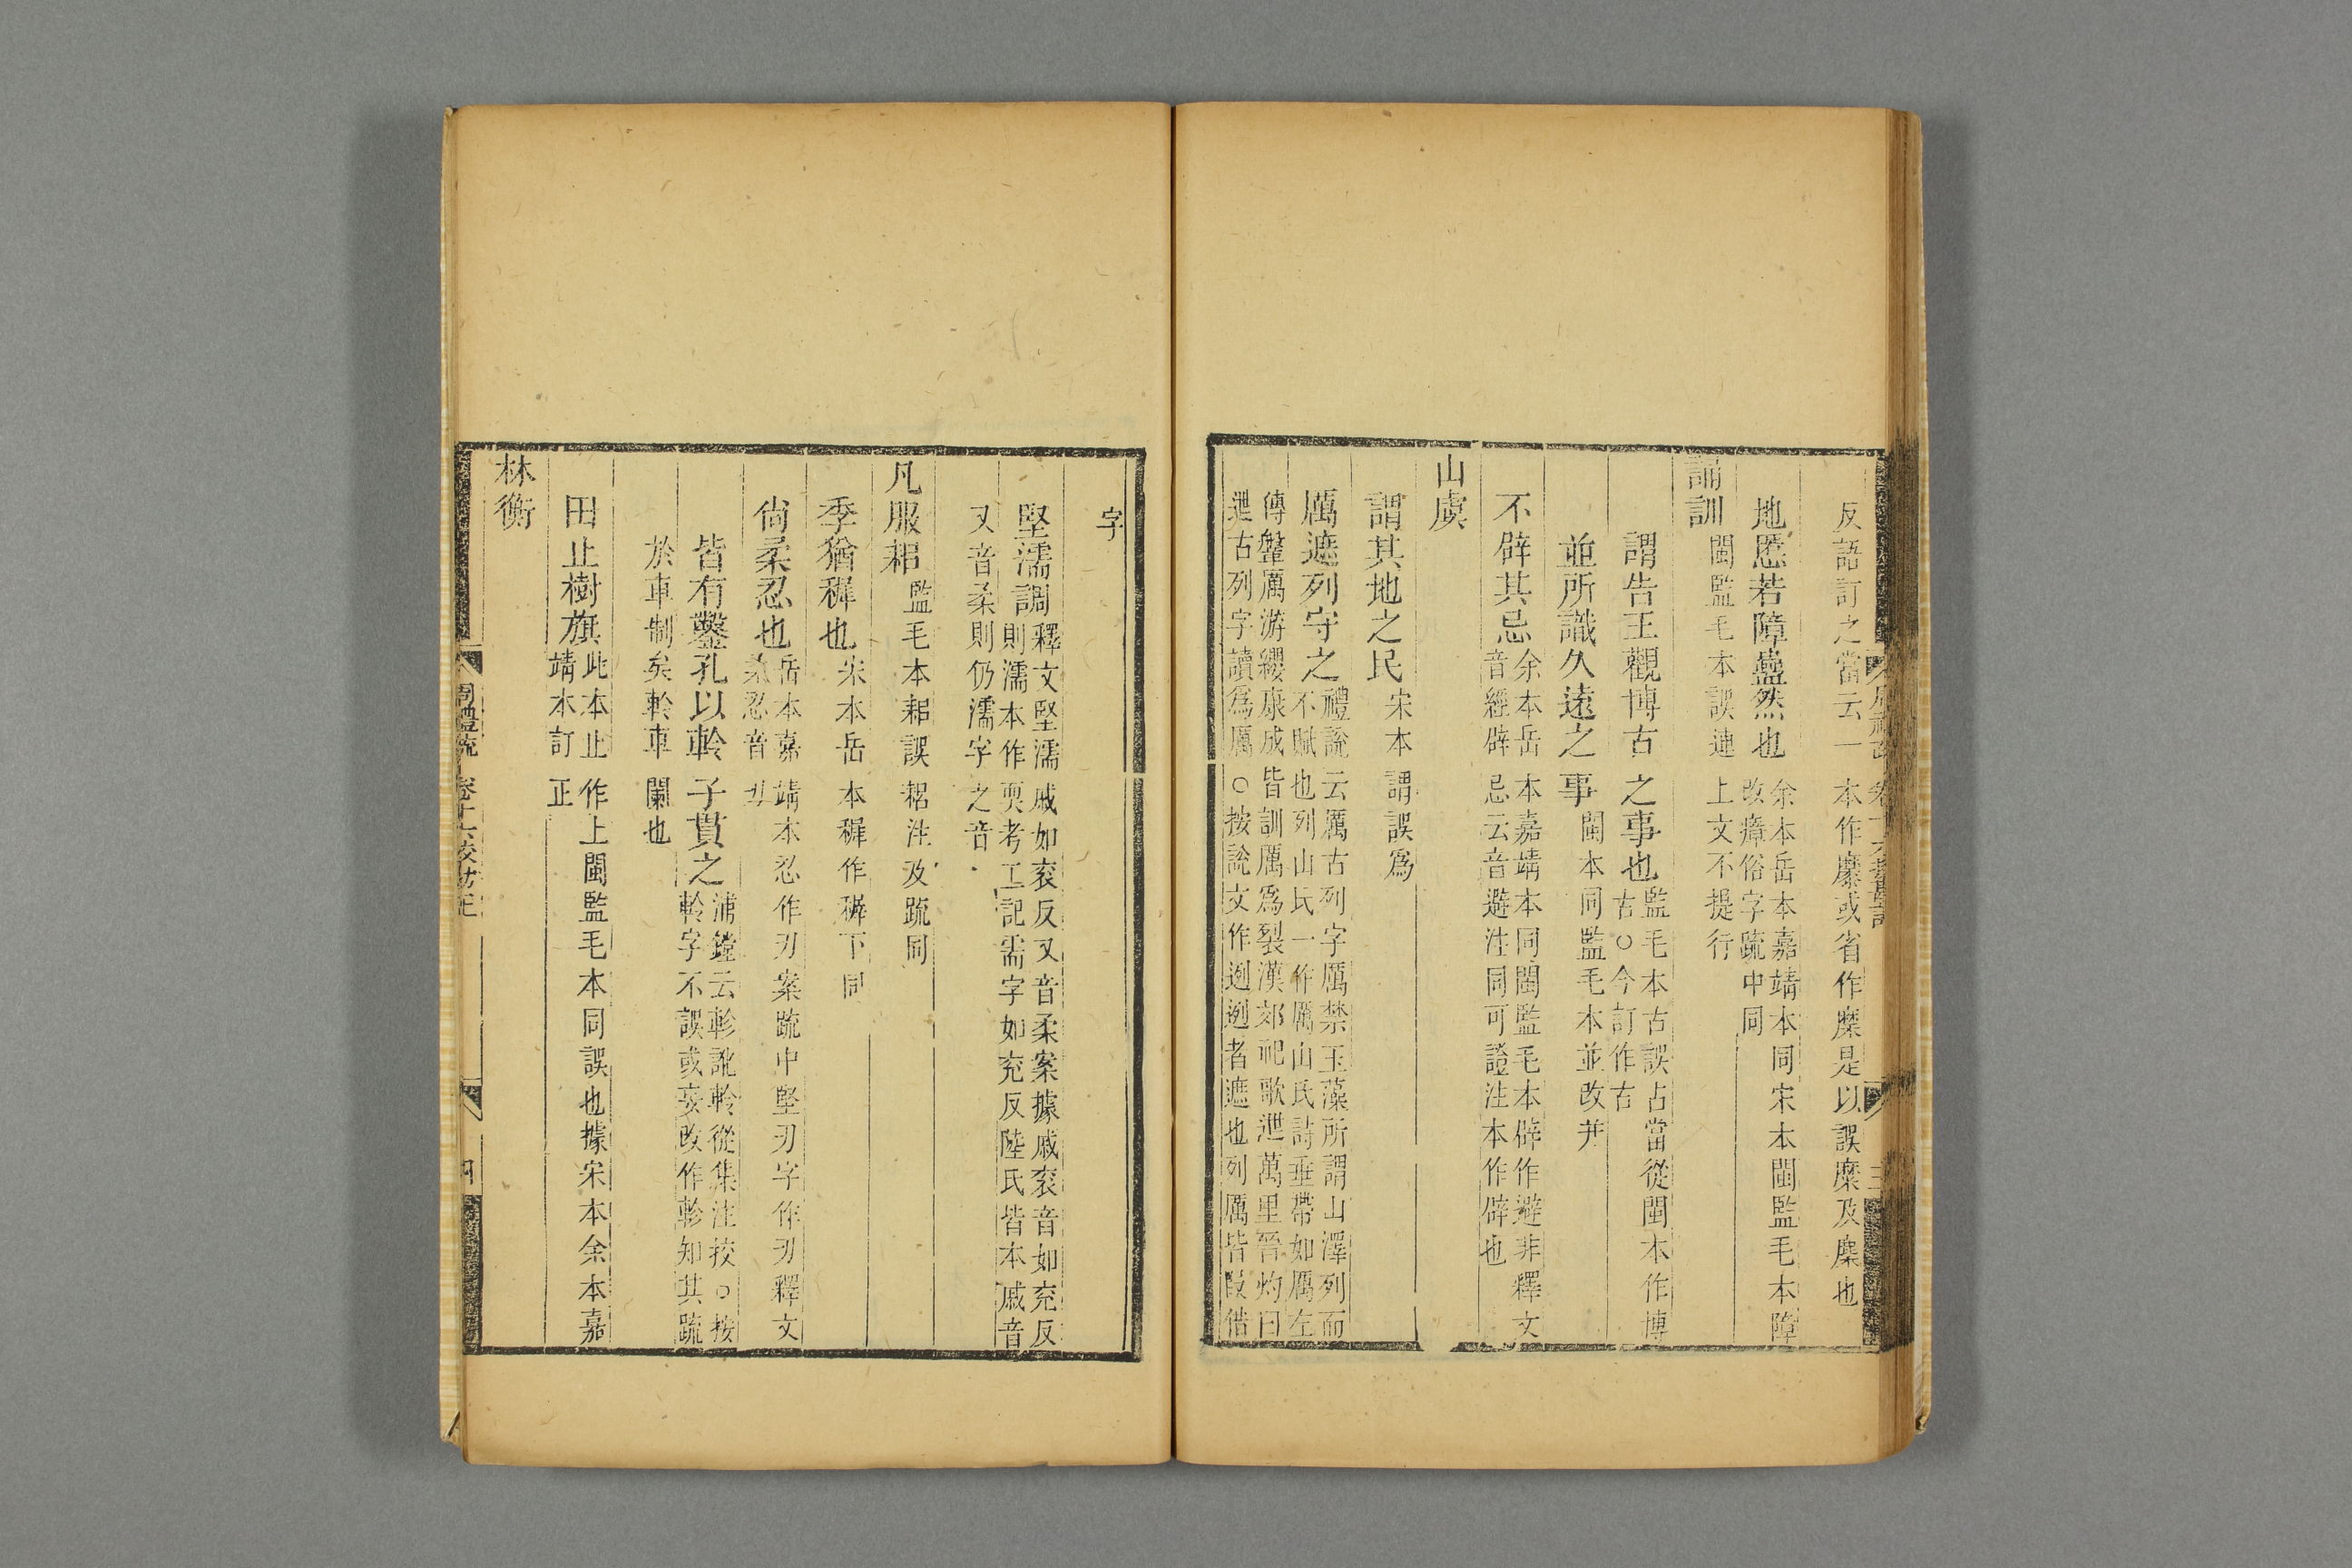 反語訂之當云一本作麋或省作麇是以誤麋及麇也
地慝若障蠱然也余本岳本嘉靖本同宋本閩監毛本障
改瘴俗字疏中同
誦訓閩監毛本誤連上文不提行
謂告王觀博古之事也監毛本古誤占當從閩本作博
古○今訂作古
並所識久遠之事閩本同監毛本並改并
不辟其忌余本岳本嘉靖本同閩監毛本辟作避非釋文
音經辟忌云音避注同可證注本作辟也
山虞
謂其地之民宋本謂誤爲
厲遮列守之禮說云厲古列字厲禁玉藻所謂山澤列而
不賦也列山氏一作厲山氏詩垂帶如厲左
傳鞶厲游纓康成皆訓厲爲裂漢郊祀歌迣萬里晉灼曰
迣古列字讀爲厲○按說文作迾迾者遮也列厲皆叚借
字
堅濡調釋文堅濡戚如兖反又音柔案據戚兖音如兖反
則濡本作耎考工記需字如兖反陸氏皆本戚音
又音柔則仍濡字之音
凡服耜監毛本耜誤耜注及疏同
季猶稺也宋本岳本稺作稺下同
尙柔忍也岳本嘉靖本忍作刃案疏中堅刃字作刃釋文
柔忍音刃
皆有鑿孔以軨子貫之浦鏜云軫訛軨從集注挍○按
軨字不誤或妄改作軫知其疏
於車制矣軨車闌也
田止樹旗此本止作上閩監毛本同誤也據宋本余本嘉
靖本訂正
林衡
周禮疏 卷十六挍勘記 四